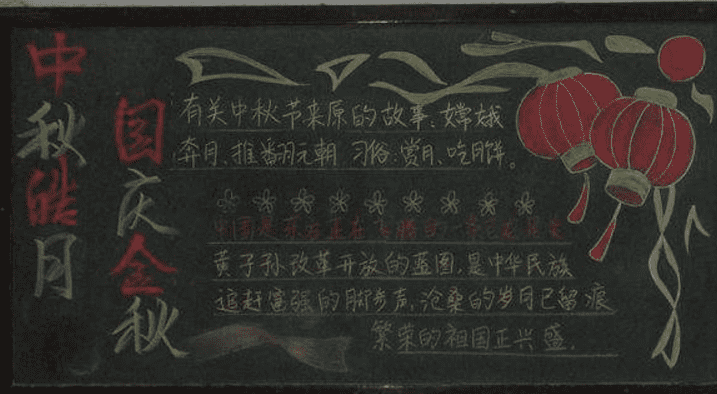 中秋皓月
国庆金秋
有关中秋节来原的故事:嫦娥
奔月、推翻元朝 习俗:赏月、吃月饼。
黄子孙改革开放的蓝图,是中华民族
追赶富强的脚步声,沧桑的岁月已留痕
繁荣的祖国正兴盛.